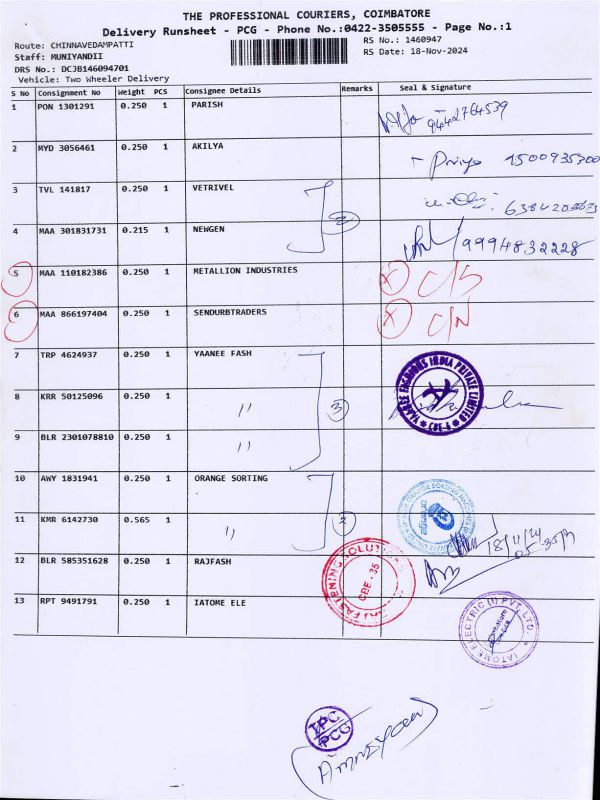 THE PROFESSIONAL COURIERS, COIMBATORE
Delivery Runsheet - PCG - Phone No.:0422-3505555 - Page No.:1
Route: CHINNAVEDAMPATTI
RS No.: 1460947
Staff: MUNIYANDII
RS Date: 18-Nov-2024
DRS No.: DCJB146094701
Vehicle: Two Wheeler Delivery
S No Consignment No Weight PCS Consignee Details Remarks Seal & Signature
1 PON 1301291 0.250 1 PARISH 9442764539
2 MYD 3056461 0.250 1 AKILYA Priya 1500935300
3 TVL 141817 0.250 1 VETRIVEL
4 MAA 301831731 0.215 1 NEWGEN 2 9994832228
5 MAA 110182386 0.250 1 METALLION INDUSTRIES X C/S
6 MAA 866197404 0.250 1 SENDURBTRADERS X C/N
7 TRP 4624937 0.250 1 YAANEE FASH
8 KRR 50125096 0.250 1 " 3
YAANEE FASHIONS INDIA PRIVATE LIMITED
CBE-6
9 BLR 2301078810 0.250 1 "
10 AWY 1831941 0.250 1 ORANGE SORTING
orange
11 KMR 6142730 0.565 1 " 2 18/11/24
05.35
12 BLR 585351628 0.250 1 RAJFASH
RAJ FASTENING SOLUTIONS
CBE - 35
13 RPT 9491791 0.250 1 IATOME ELE
IATONE ELECTRIC (I) PVT. LTD.
Coimbatore
TPC
PCG